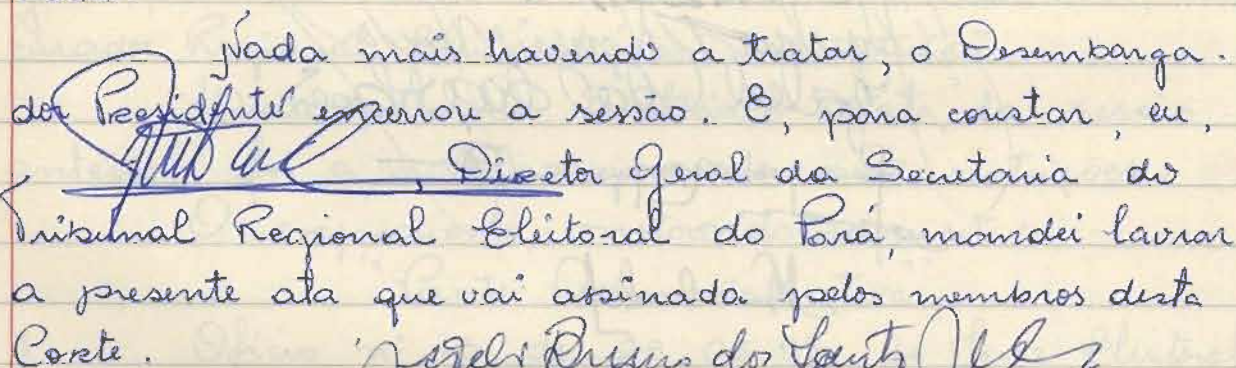 Nada mais havendo a tratar, o Desembarga-
dor Presidente encerrou a sessão. E, para constar, eu,
, Diretor Geral da Secretaria do
Tribunal Regional Eleitoral do Pará, mandei lavrar
a presente ata que vai assinada pelos membros desta
Corte. dos Santos